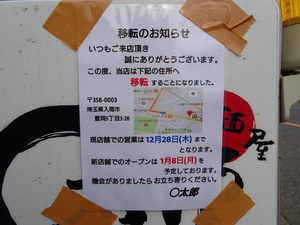 移転のお知らせ
いつもご来店頂き
誠にありがとうございます。
この度、当店は下記の住所へ
移転 することになりました。
〒358-0003
埼玉県入間市
豊岡5丁目3-28
現店舗での営業は12月28日(木)まで
となります。
新店舗でのオープンは1月8日(月)を
予定しております。
機会がありましたらお立ち寄りください。
〇太郎
麺屋